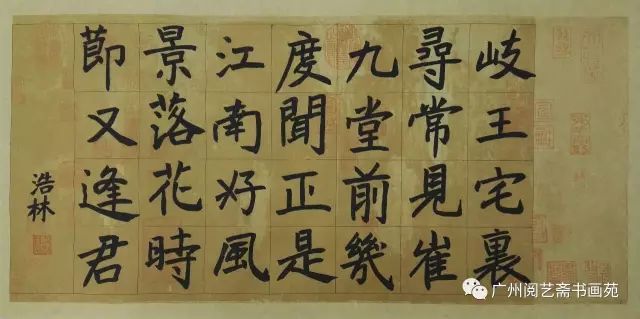 岐王宅裏
尋常見崔
九堂前幾
度聞正是
江南好風
景落花時
節又逢君
浩林
广州阅艺斋书画苑